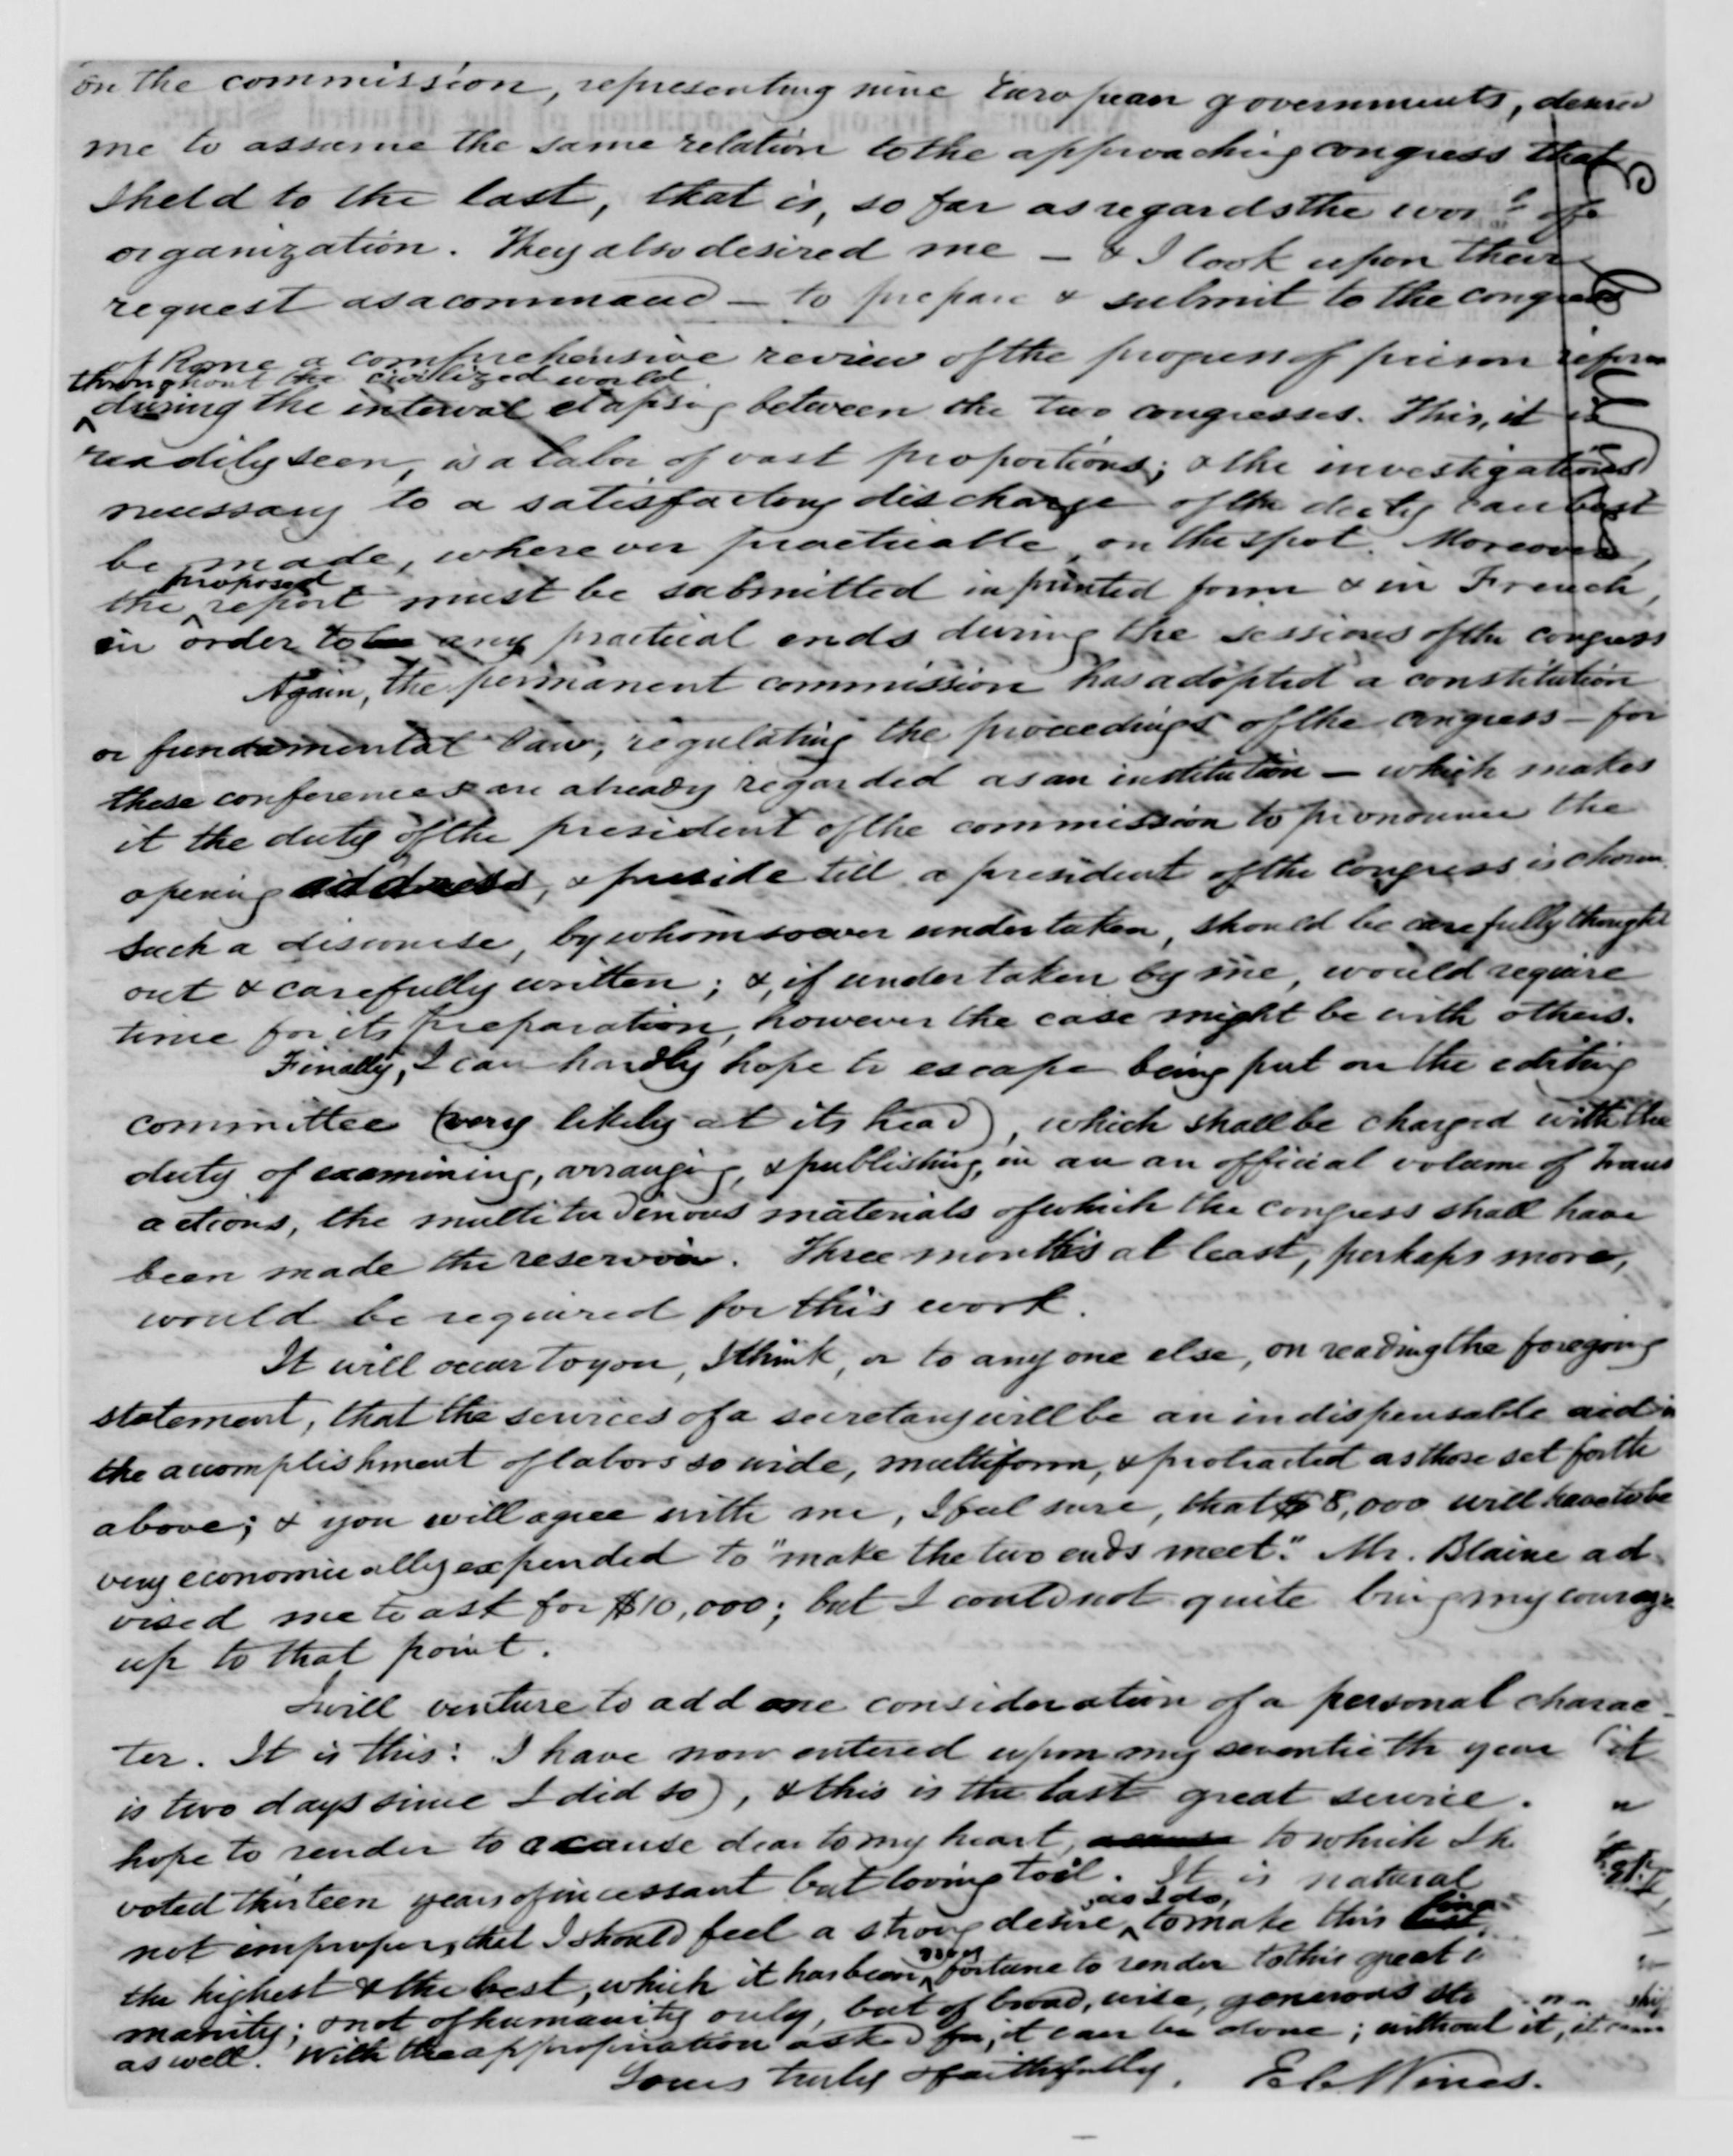 on the commission, representing nine European governments, desired
me to assume the same relation to the approaching congress that
I held to the last, that is, so far as regards the work of
organization. They also desired me — & I look upon their
request as a command — to prepare & submit to the congress
of Rome a comprehensive review of the progress of prison reform
throughout the civilized world
during the interval elapsing between the two congresses. This, it is
readily seen, is a labor of vast proportions; & the investigations
necessary to a satisfactory discharge of the duty can best
be made, wherever practicable, on the spot. Moreover,
proposed
the report must be submitted in printed form & in French,
in order to any practical ends during the sessions of the congress
Again, the permanent commission has adopted a constitution
or fundamental law, regulating the proceedings of the congress — for
these conferences are already regarded as an institution — which makes
it the duty of the president of the commission to pronounce the
opening address, & preside till a president of the congress is chosen.
Such a discourse, by whomsoever undertaken, should be carefully thought
out & carefully written; &, if undertaken by me, would require
time for its preparation, however the case might be with others.
Finally, I can hardly hope to escape being put on the editing
committee (very likely at its head), which shall be charged with the
duty of examining, arranging, & publishing, in an an official volume of Trans
actions, the multitudinous materials of which the congress shall have
been made the reservoir. Three months at least, perhaps more,
would be required for this work.
It will occur to you, I think, or to any one else, on reading the foregoing
statement, that the services of a secretary will be an indispensable aid in
the accomplishment of labors so wide, multiform, & protracted as those set forth
above; & you will agree with me, I feel sure, that $8,000 will have to be
very economically expended to "make the two ends meet." Mr. Blaine ad-
vised me to ask for $10,000; but I could not quite bring my courage
up to that point.
I will venture to add one consideration of a personal charac-
ter. It is this: I have now entered upon my seventieth year (it
is two days since I did so), & this is the last great service
hope to render to a cause dear to my heart, to which I h
voted thirteen years of incessant but loving toil. It is natural
as I do,
not improper, that I should feel a strong desire, to make this
my
the highest & the best, which it has been fortune to render to this great
manity; & not of humanity only, but of broad, wise, generous sta
as well. With the appropriation asked for, it can be done; without it, it can
Yours truly & faithfully, E C Wines.